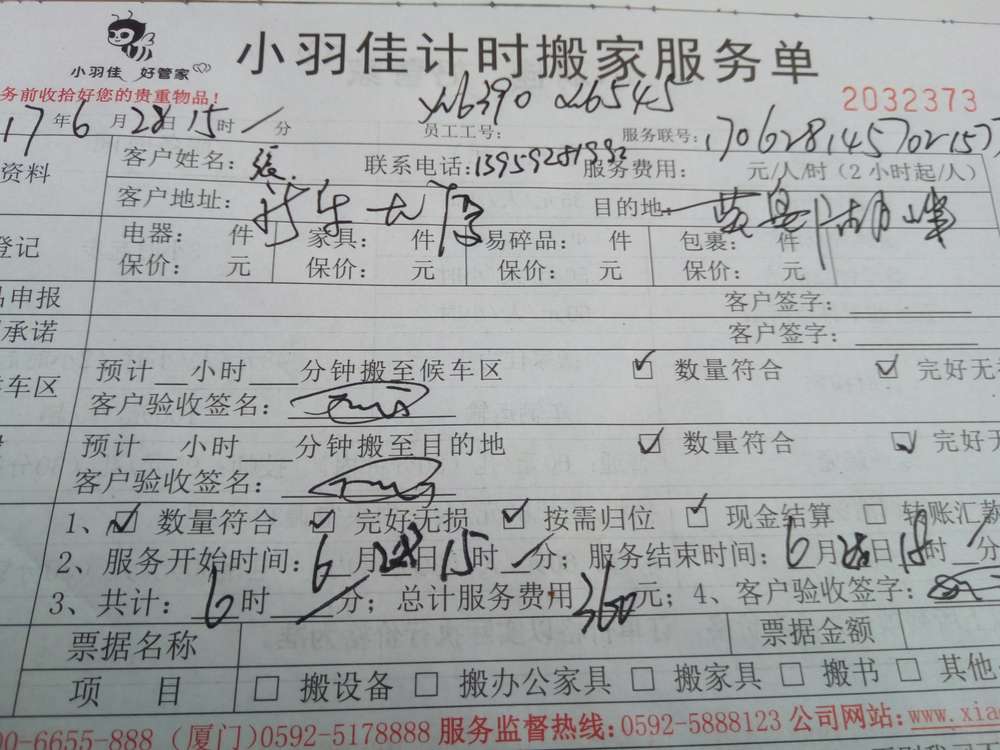 小羽佳 好管家
小羽佳计时搬家服务单
务前收拾好您的贵重物品!
2032373
17年6月28日15时/分 员工工号: 服务联号:
资料 客户姓名:张 联系电话: 服务费用: 元/人/时(2小时起/人)
客户地址: 目的地:
登记 电器: 件 家具: 件 易碎品: 件 包裹: 件
保价: 元 保价: 元 保价: 元 保价: 元
品申报 客户签字:
承诺 客户签字:
车区 预计__小时___分钟搬至候车区 ☑ 数量符合 ☑ 完好无
客户验收签名:
预计__小时___分钟搬至目的地 ☑ 数量符合 ☑ 完好无
客户验收签名:
1、☑ 数量符合 ☑ 完好无损 ☑ 按需归位 ☑ 现金结算 □ 转账汇款
2、服务开始时间:6月28日15时/分;服务结束时间:6月28日18时/分
3、共计:6时/分;总计服务费用360元;4、客户验收签字:
票据名称 票据金额
项 目 □ 搬设备 □ 搬办公家具 □ 搬家具 □ 搬书 □ 其他
0-6655-888 (厦门)0592-5178888 服务监督热线:0592-5888123 公司网站:www.xia